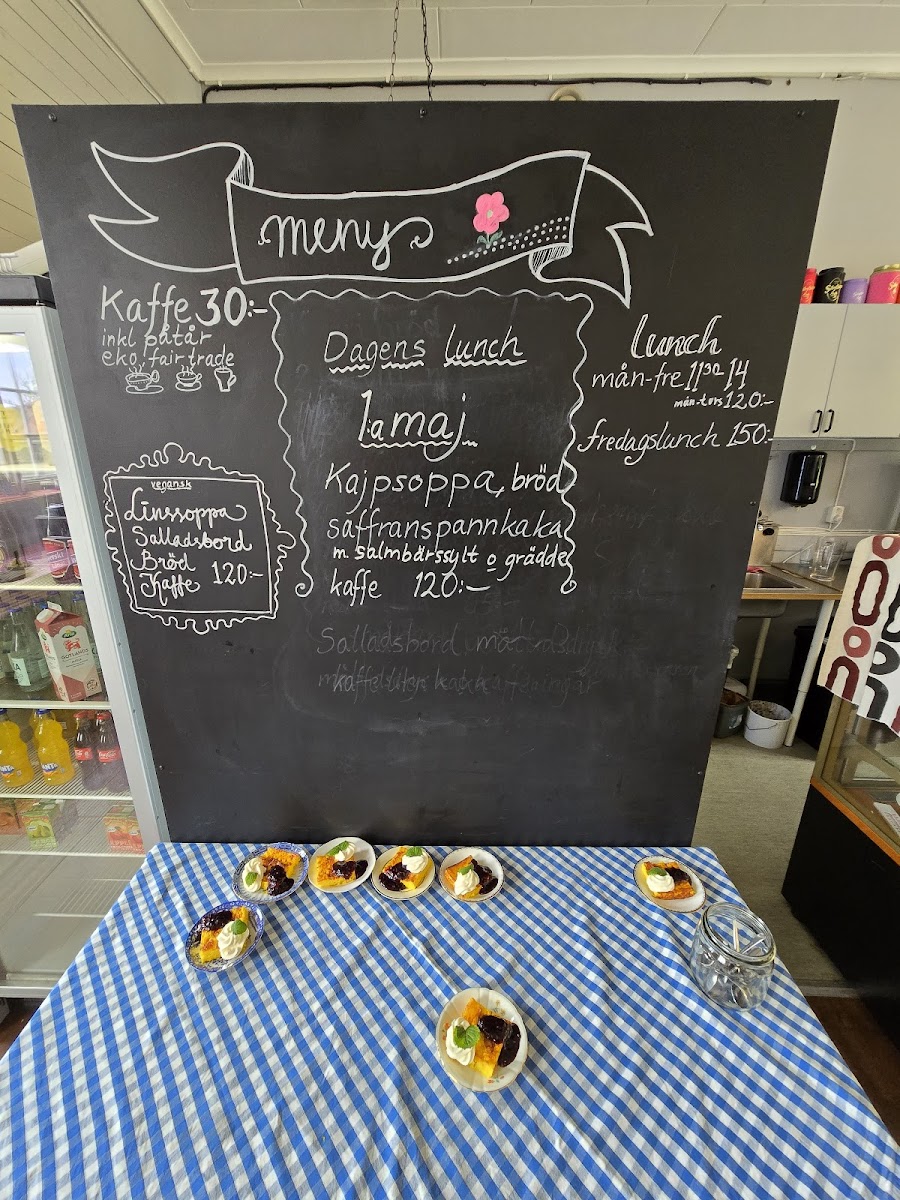 meny
Kaffe 30:-
inkl påtår
eko, fairtrade
Dagens lunch
1a maj
Kajpsoppa, bröd
saffranspannkaka
m. salmbärssylt o grädde
kaffe 120:-
lunch
mån-fre 11³⁰ 14
mån-tors 120:-
fredagslunch 150:-
vegansk
Linssoppa
Salladsbord
Bröd
Kaffe 120:-
Salladsbord